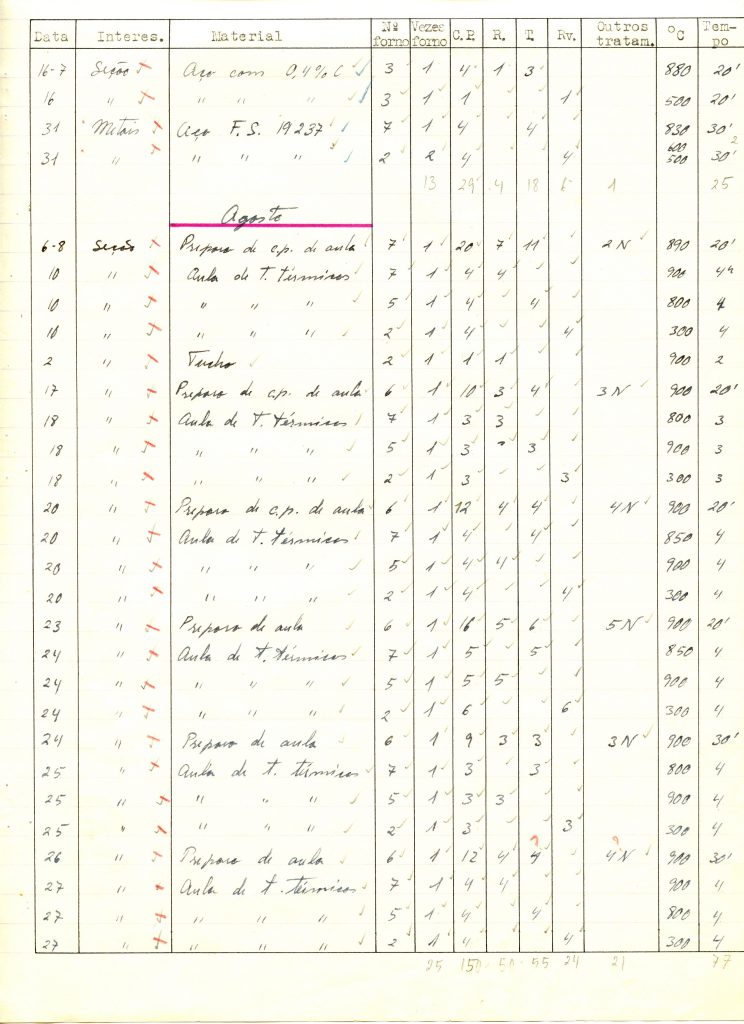 Data Interes. Material Nº forno Vezes forno C.P. R. T. Rv. Outros tratam. ºC Tempo
16-7 Seção Aço com 0,4% C 3 1 4 1 3 880 20'
16 " " " " 3 1 1 1 500 20'
31 Metais Aço F.S. 19237 7 1 4 4 830 30'
31 " " " " 2 2 4 4 600 500 30' 2
13 29 4 18 6 1 25
Agosto
6-8 Seção Preparo de c.p. de aula 7 1 20 7 11 2N 890 20'
10 " Aula de T. térmicos 7 1 4 4 900 4
10 " " " " 5 1 4 4 800 4
10 " " " " 2 1 4 4 300 4
2 " Tucho 2 1 1 1 900 2
17 " Preparo de c.p. de aula 6 1 10 3 4 3N 900 20'
18 " Aula de T. térmicos 7 1 3 3 800 3
18 " " " " 5 1 3 3 900 3
18 " " " " 2 1 3 3 300 3
20 " Preparo de c.p. de aula 6 1 12 4 4 4N 900 20'
20 " Aula de T. térmicos 7 1 4 4 850 4
20 " " " " 5 1 4 4 900 4
20 " " " " 2 1 4 4 300 4
23 " Preparo de aula 6 1 16 5 6 5N 900 20'
24 " Aula de t. térmicos 7 1 5 5 850 4
24 " " " " 5 1 5 5 900 4
24 " " " " 2 1 6 6 300 4
24 " Preparo de aula 6 1 9 3 3 3N 900 30'
25 " Aula de t. térmicos 7 1 3 3 800 4
25 " " " " 5 1 3 3 900 4
25 " " " " 2 1 3 3 300 4
? ?
26 " Preparo de aula 6 1 12 4 4 4N 900 30'
27 " Aula de t. térmicos 7 1 4 4 900 4
27 " " " " 5 1 4 4 800 4
27 " " " " 2 1 4 4 300 4
25 150 50 55 24 21 77